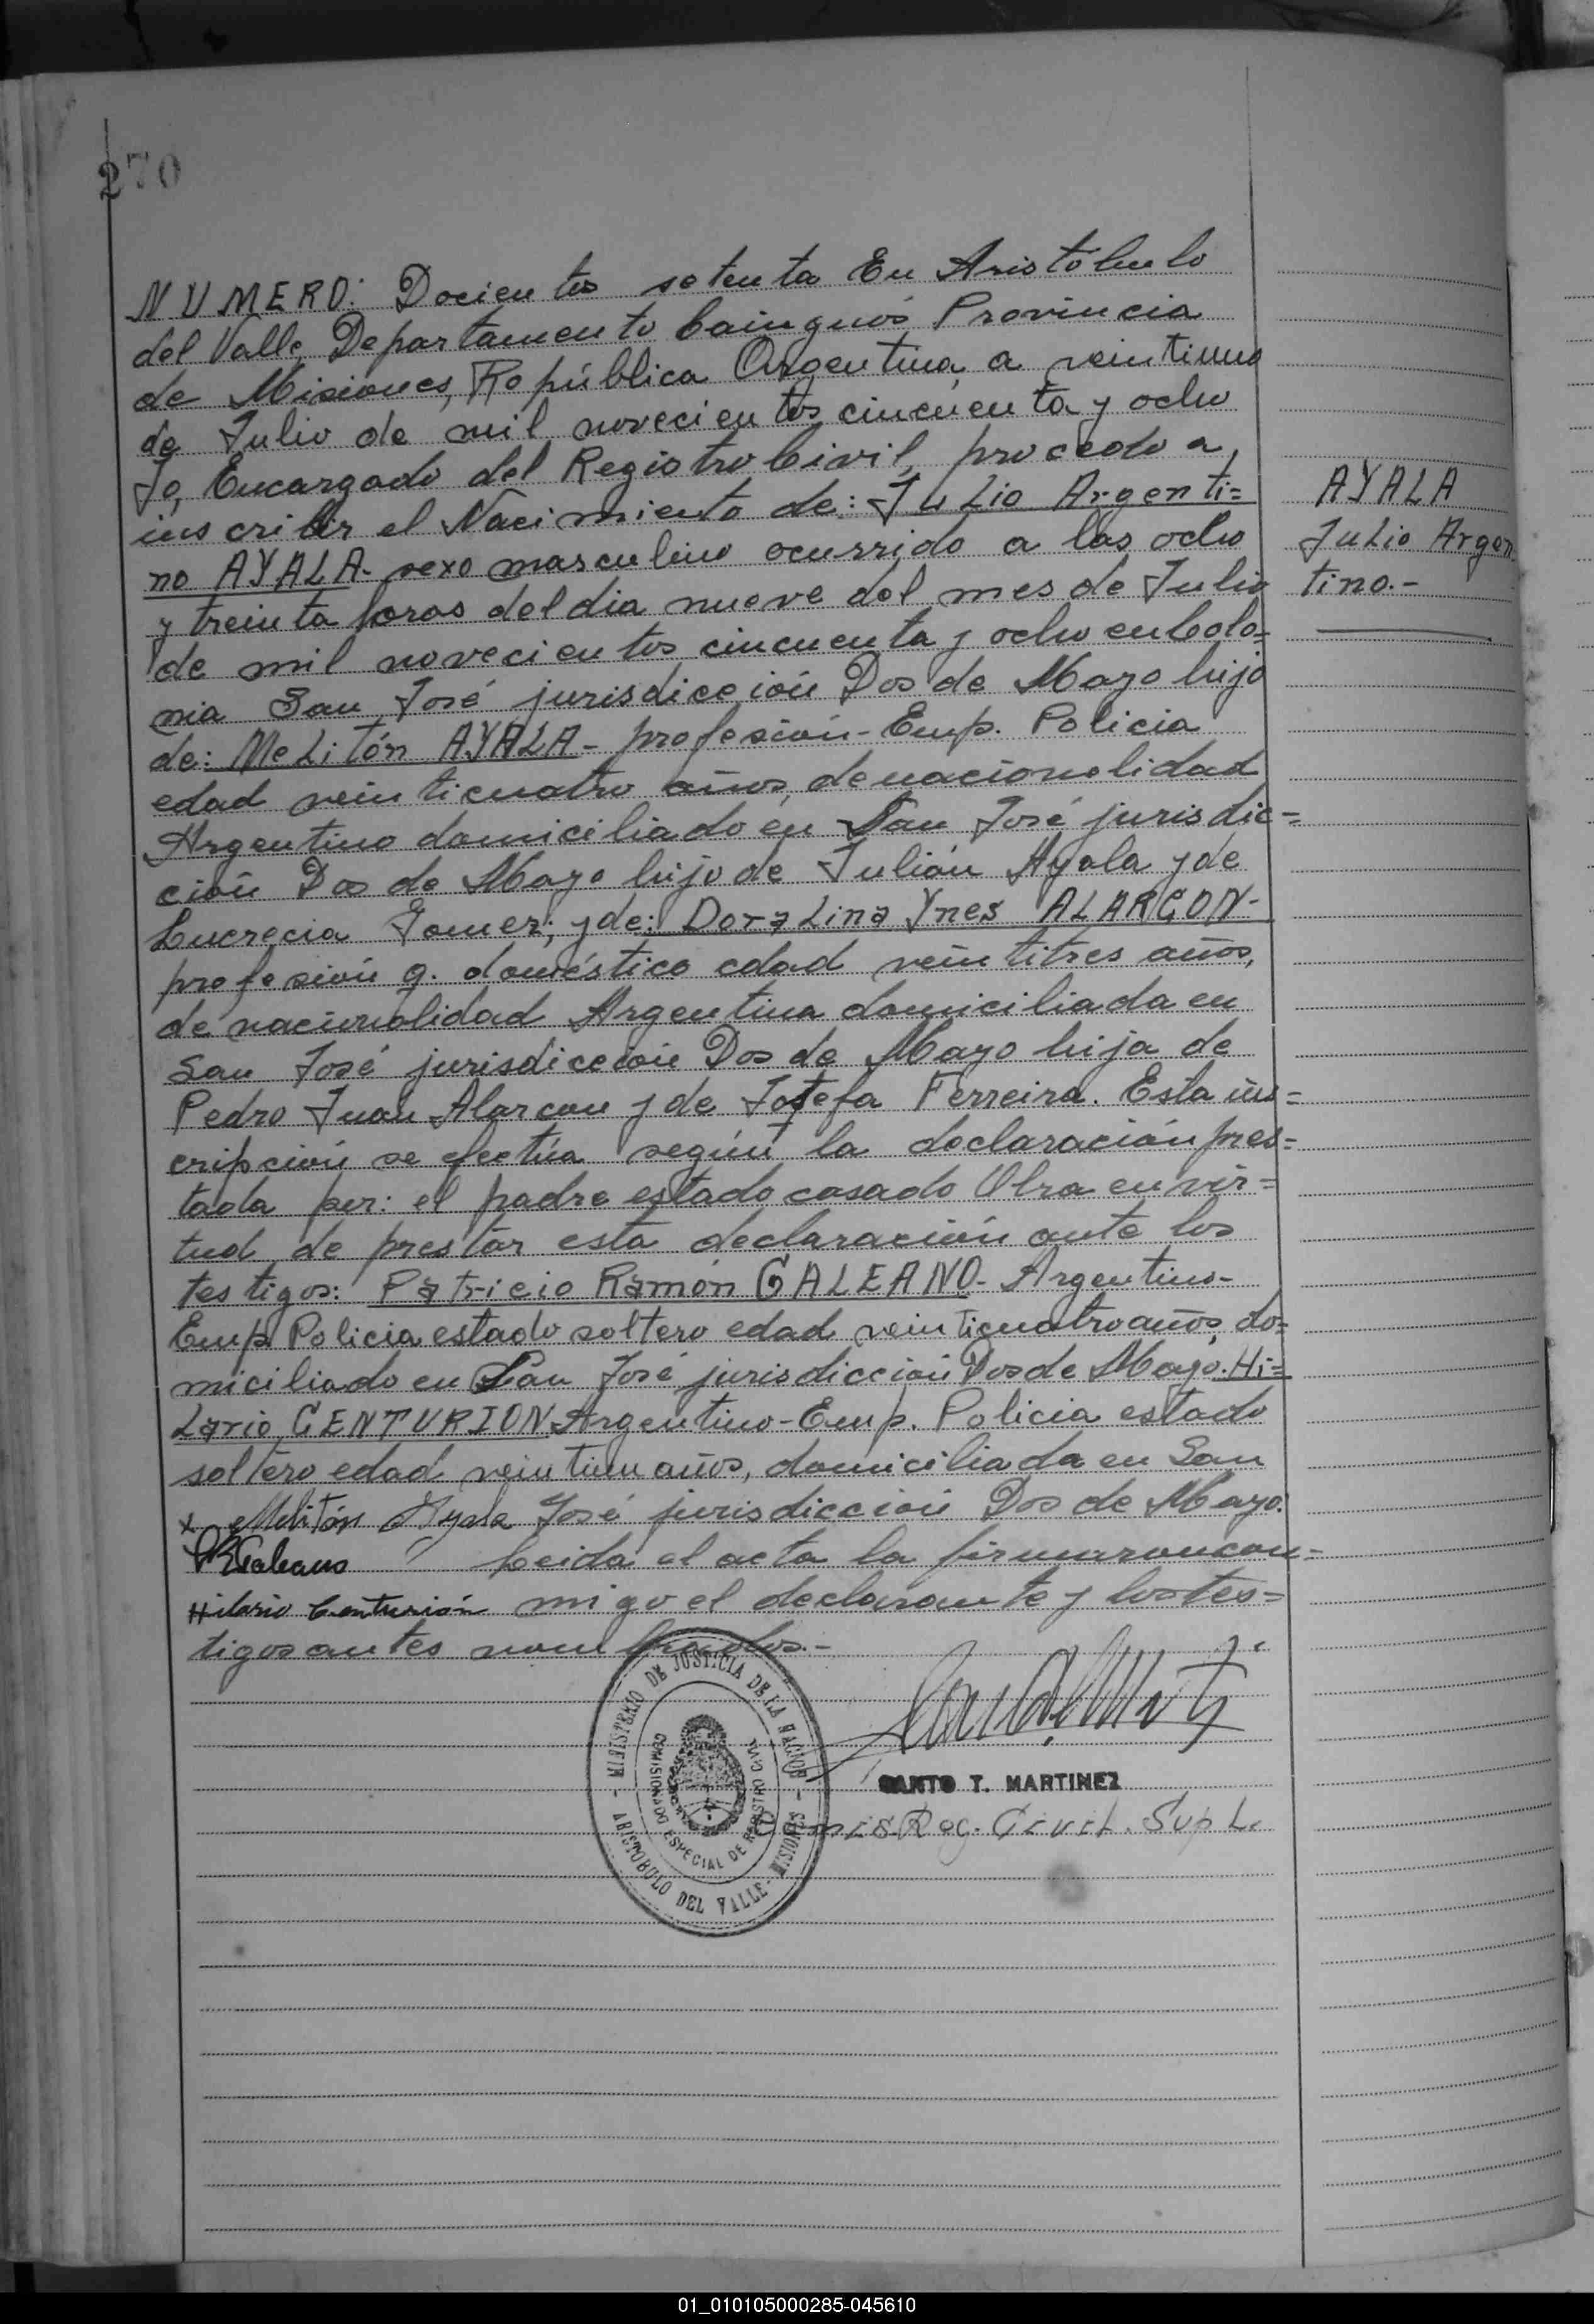 270
NUMERO: Docientos setenta En Aristóbulo
del Valle, Departamento Cainguás, Provincia
de Misiones, República Argentina, a veintiuno
de Julio de mil novecientos cincuenta y ocho
Yo, Encargado del Registro Civil, procedo a,
inscribir el Nacimiento de: JuLio Argenti=
no AYALA- sexo masculino ocurrido a las ocho
y treinta horas del dia nueve del mes de Julio
de mil novecientos cincuenta y ocho en Colo=
nia San José jurisdicción Dos de Mayo hijo
de: MeLitón AYALA- profesión- Emp. Policia
edad veinticuatro años, de nacionalidad
Argentino domiciliado en San José jurisdic=
ción Dos de Mayo hijo de Julián Ayala y de
Lucrecia Gomez; y de: DoraLina Ynes ALARCON-
profesión q. doméstico edad veintitres años,
de nacionalidad Argentina domiciliada en
San José jurisdicción Dos de Mayo hija de
Pedro Juan Alarcon y de Josefa Ferreira. Esta ins=
cripción se efectúa según la declaración pres=
tada por: el padre estado casado Obra en vir=
tud de prestar esta declaración ante los
testigos: Patricio Ramón GALEANO- Argentino-
Emp. Policia estado soltero edad veinticuatro años, do=
miciliado en San José jurisdicción Dos de Mayo. Hi=
Lario CENTURION- Argentino- Emp. Policia estado
soltero edad veintiun años, domiciliada en San
x Melitón Ayala José jurisdicción Dos de Mayo.
PRGaleano Leida el acta la firmaron con=
Hilario Centurión migo el declarante y los tes=
tigos antes nombrados.-
AYALA
JuLio Argen
tino.-
MINISTERIO DE JUSTICIA DE LA NACION
COMISIONADO ESPECIAL DE REGISTRO CIVIL
ARISTOBULO DEL VALLE - MISIONES
SANTO T. MARTINEZ
Comis. Reg. CiviL. SupL.
01_010105000285-045610